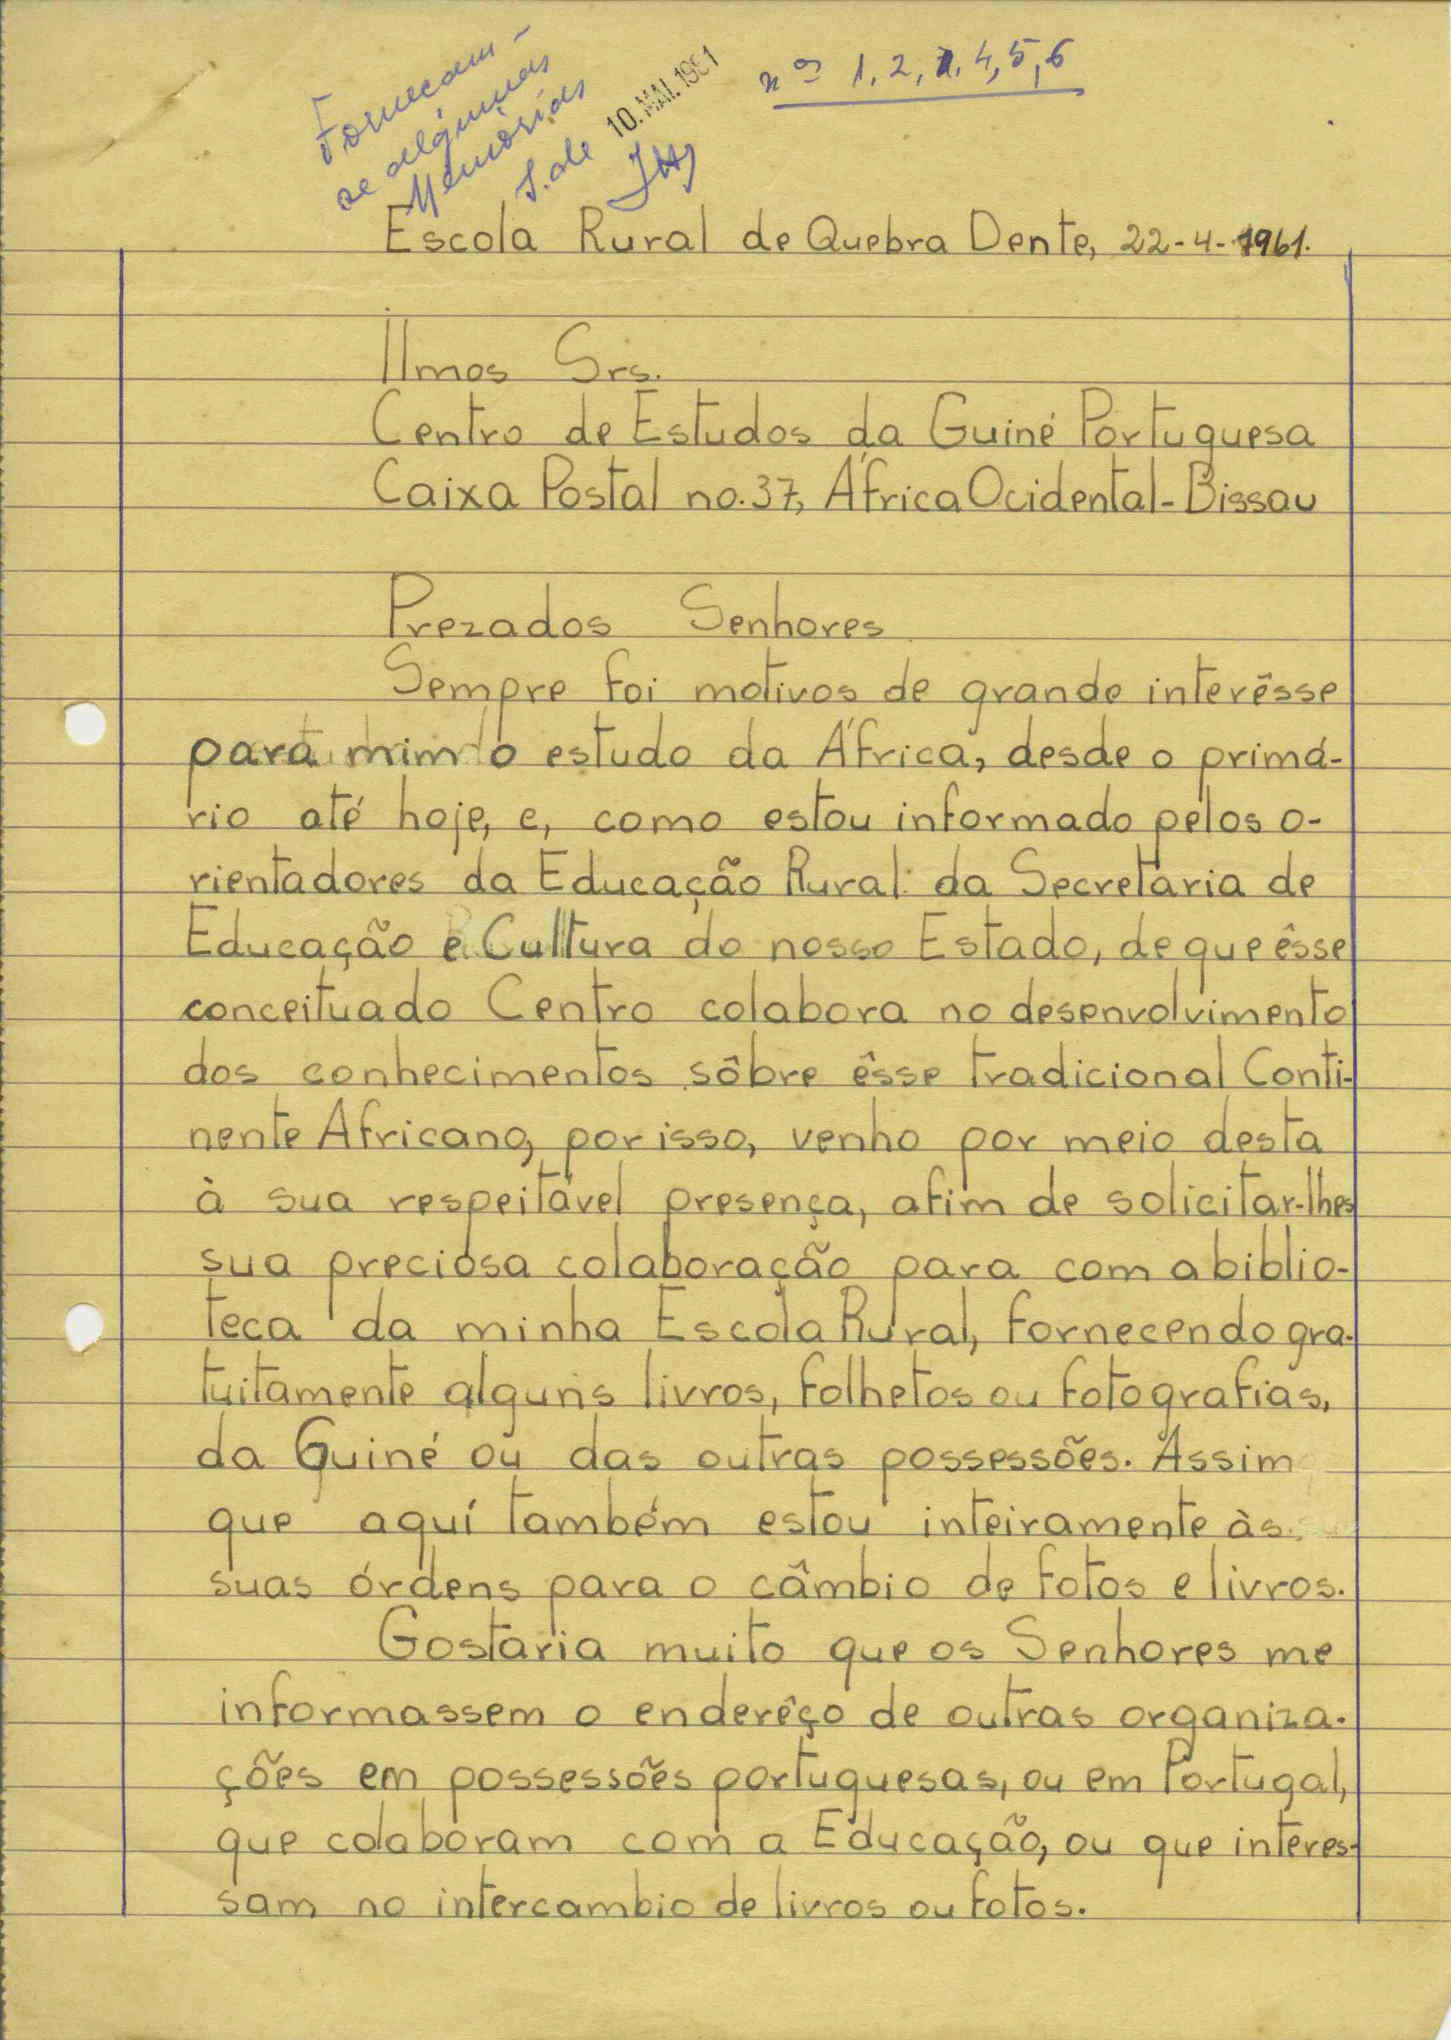 Forneçam-
se algumas
Memórias
10. MAI. 1961
nos 1, 2, 4, 5, 6
Escola Rural de Quebra Dente, 22-4-1961.
Ilmos Srs.
Centro de Estudos da Guiné Portuguesa
Caixa Postal no. 37, África Ocidental-Bissau
Prezados Senhores
Sempre foi motivos de grande interêsse
para mim o estudo da África, desde o primá-
rio até hoje, e, como estou informado pelos o-
rientadores da Educação Rural da Secretaria de
Educação e Cultura do nosso Estado, de que êsse
conceituado Centro colabora no desenvolvimento
dos conhecimentos sôbre êsse tradicional Conti-
nente Africano, por isso, venho por meio desta
à sua respeitável presença, afim de solicitar-lhes
sua preciosa colaboração para com a biblio-
teca da minha Escola Rural, fornecendo gra-
tuitamente alguns livros, folhetos ou fotografias,
da Guiné ou das outras possessões. Assim
que aquí também estou inteiramente às
suas órdens para o câmbio de fotos e livros.
Gostaria muito que os Senhores me
informassem o enderêço de outras organiza-
ções em possessões portuguesas, ou em Portugal,
que colaboram com a Educação, ou que interes-
sam no intercambio de livros ou fotos.